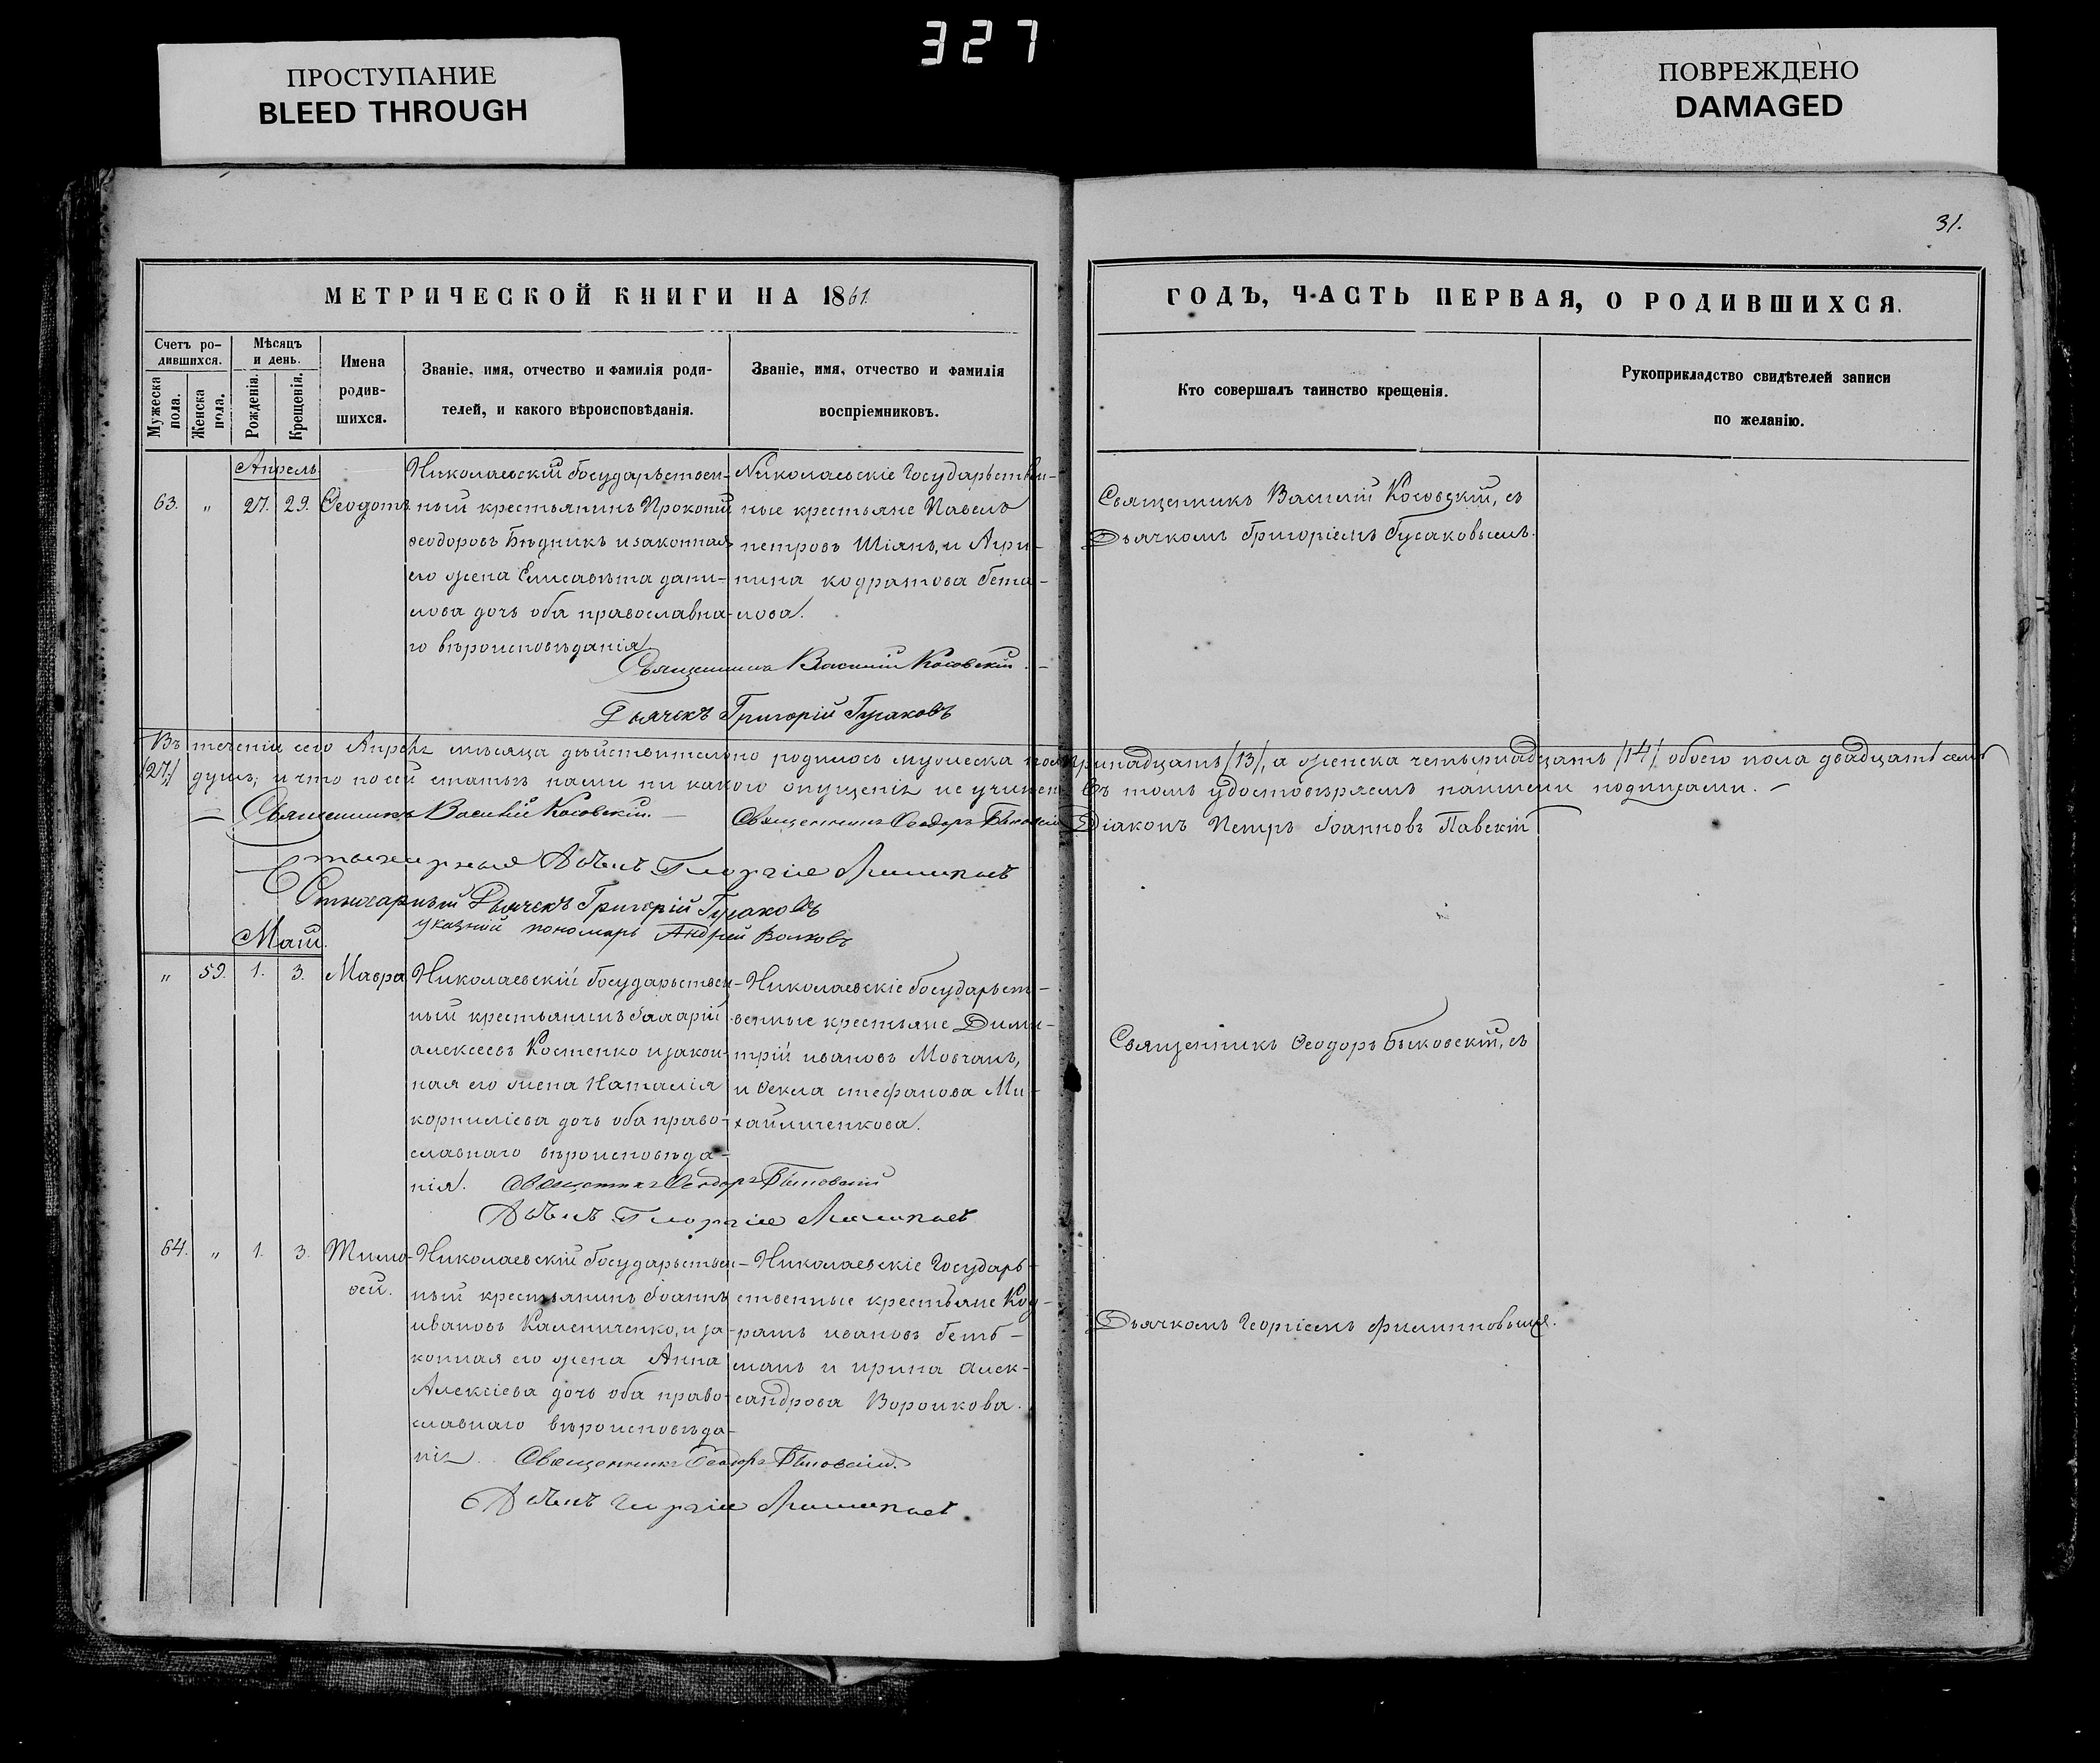 327
ПРОСТУПАНИЕ
BLEED THROUGH
ПОВРЕЖДЕНО
DAMAGED
31.
МЕТРИЧЕСКОЙ КНИГИ НА 1861
ГОДЪ, ЧАСТЬ ПЕРВАЯ, О РОДИВШИХСЯ.
Счетъ ро-
дившихся.
Мужеска пола.
Женска пола.
Мѣсяцъ
и день.
Рожденія.
Крещенія.
Имена
родив-
шихся.
Званіе, имя, отчество и фамилія роди-
телей, и какого вѣроисповѣданія.
Званіе, имя, отчество и фамилія
воспріемниковъ.
Кто совершалъ таинство крещенія.
Рукоприкладство свидѣтелей записи
по желанію.
Апрель
63. „ 27. 29. Ѳеодотъ
Николаевскій Государьствен-
ный крестьянинъ Прокопій
Ѳеодоровъ Бѣдникъ и законная
его жена Елисавѣта дани-
лова дочь оба православна-
го вѣроисповѣданія
Николаевскіе Государьствен-
ные крестьяне Павелъ
петровъ Шіянъ, и Агри-
пина кодратова Гета-
лова.
Священникъ Василій Косовскій, съ
Дьячкомъ Григоріемъ Гусаковымъ.
Священникъ Василій Косовскій
Дьячекъ Григорій Гусаковъ
Въ теченіи сего Апреля мѣсяца дѣйствительно родилось мужеска пола тринадцать /13/, а женска четырнадцать /14/ обоего пола двадцать семь
/27/ душъ; и что по сей статьѣ нами ни какого опущенія не учинено въ томъ удостовѣряемъ нашими подписами.
Священникъ Василій Косовскій
Священникъ Ѳеодоръ Быковскій
Діаконъ Петръ Іоанновъ Павскій
Стихарный Дьячекъ Григорій Гусаковъ
указной пономарь Андрей Волковъ
Маій
„ 59. 1. 3. Мавра
Николаевскій Государьствен-
ный крестьянинъ Захарій
алексеевъ Костенко и закон-
ная его жена Наталія
корниліева дочь оба право-
славнаго вѣроисповѣда-
нія.
Николаевскіе Государьст-
венные крестьяне Дими-
трій ивановъ Мовчанъ,
и Ѳекла стефанова Ми-
хайличенкова.
Священникъ Ѳеодоръ Быковскій, съ
Священникъ Ѳеодоръ Быковскій
64. „ 1. 3. Тимо-
ѳей.
Николаевскій Государьствен-
ный крестьянинъ Іоаннъ
ивановъ Калениченко, и за-
конная его жена Анна
Алексіева дочь оба право-
славнаго вѣроисповѣда-
нія
Николаевскіе Государь-
ственные крестьяне Код-
ратъ ивановъ Гетб-
манъ и ирина Алек-
сандрова Воронкова.
Дьячкомъ Георгіемъ Филипповымъ.
Священникъ Ѳеодоръ Быковскій.